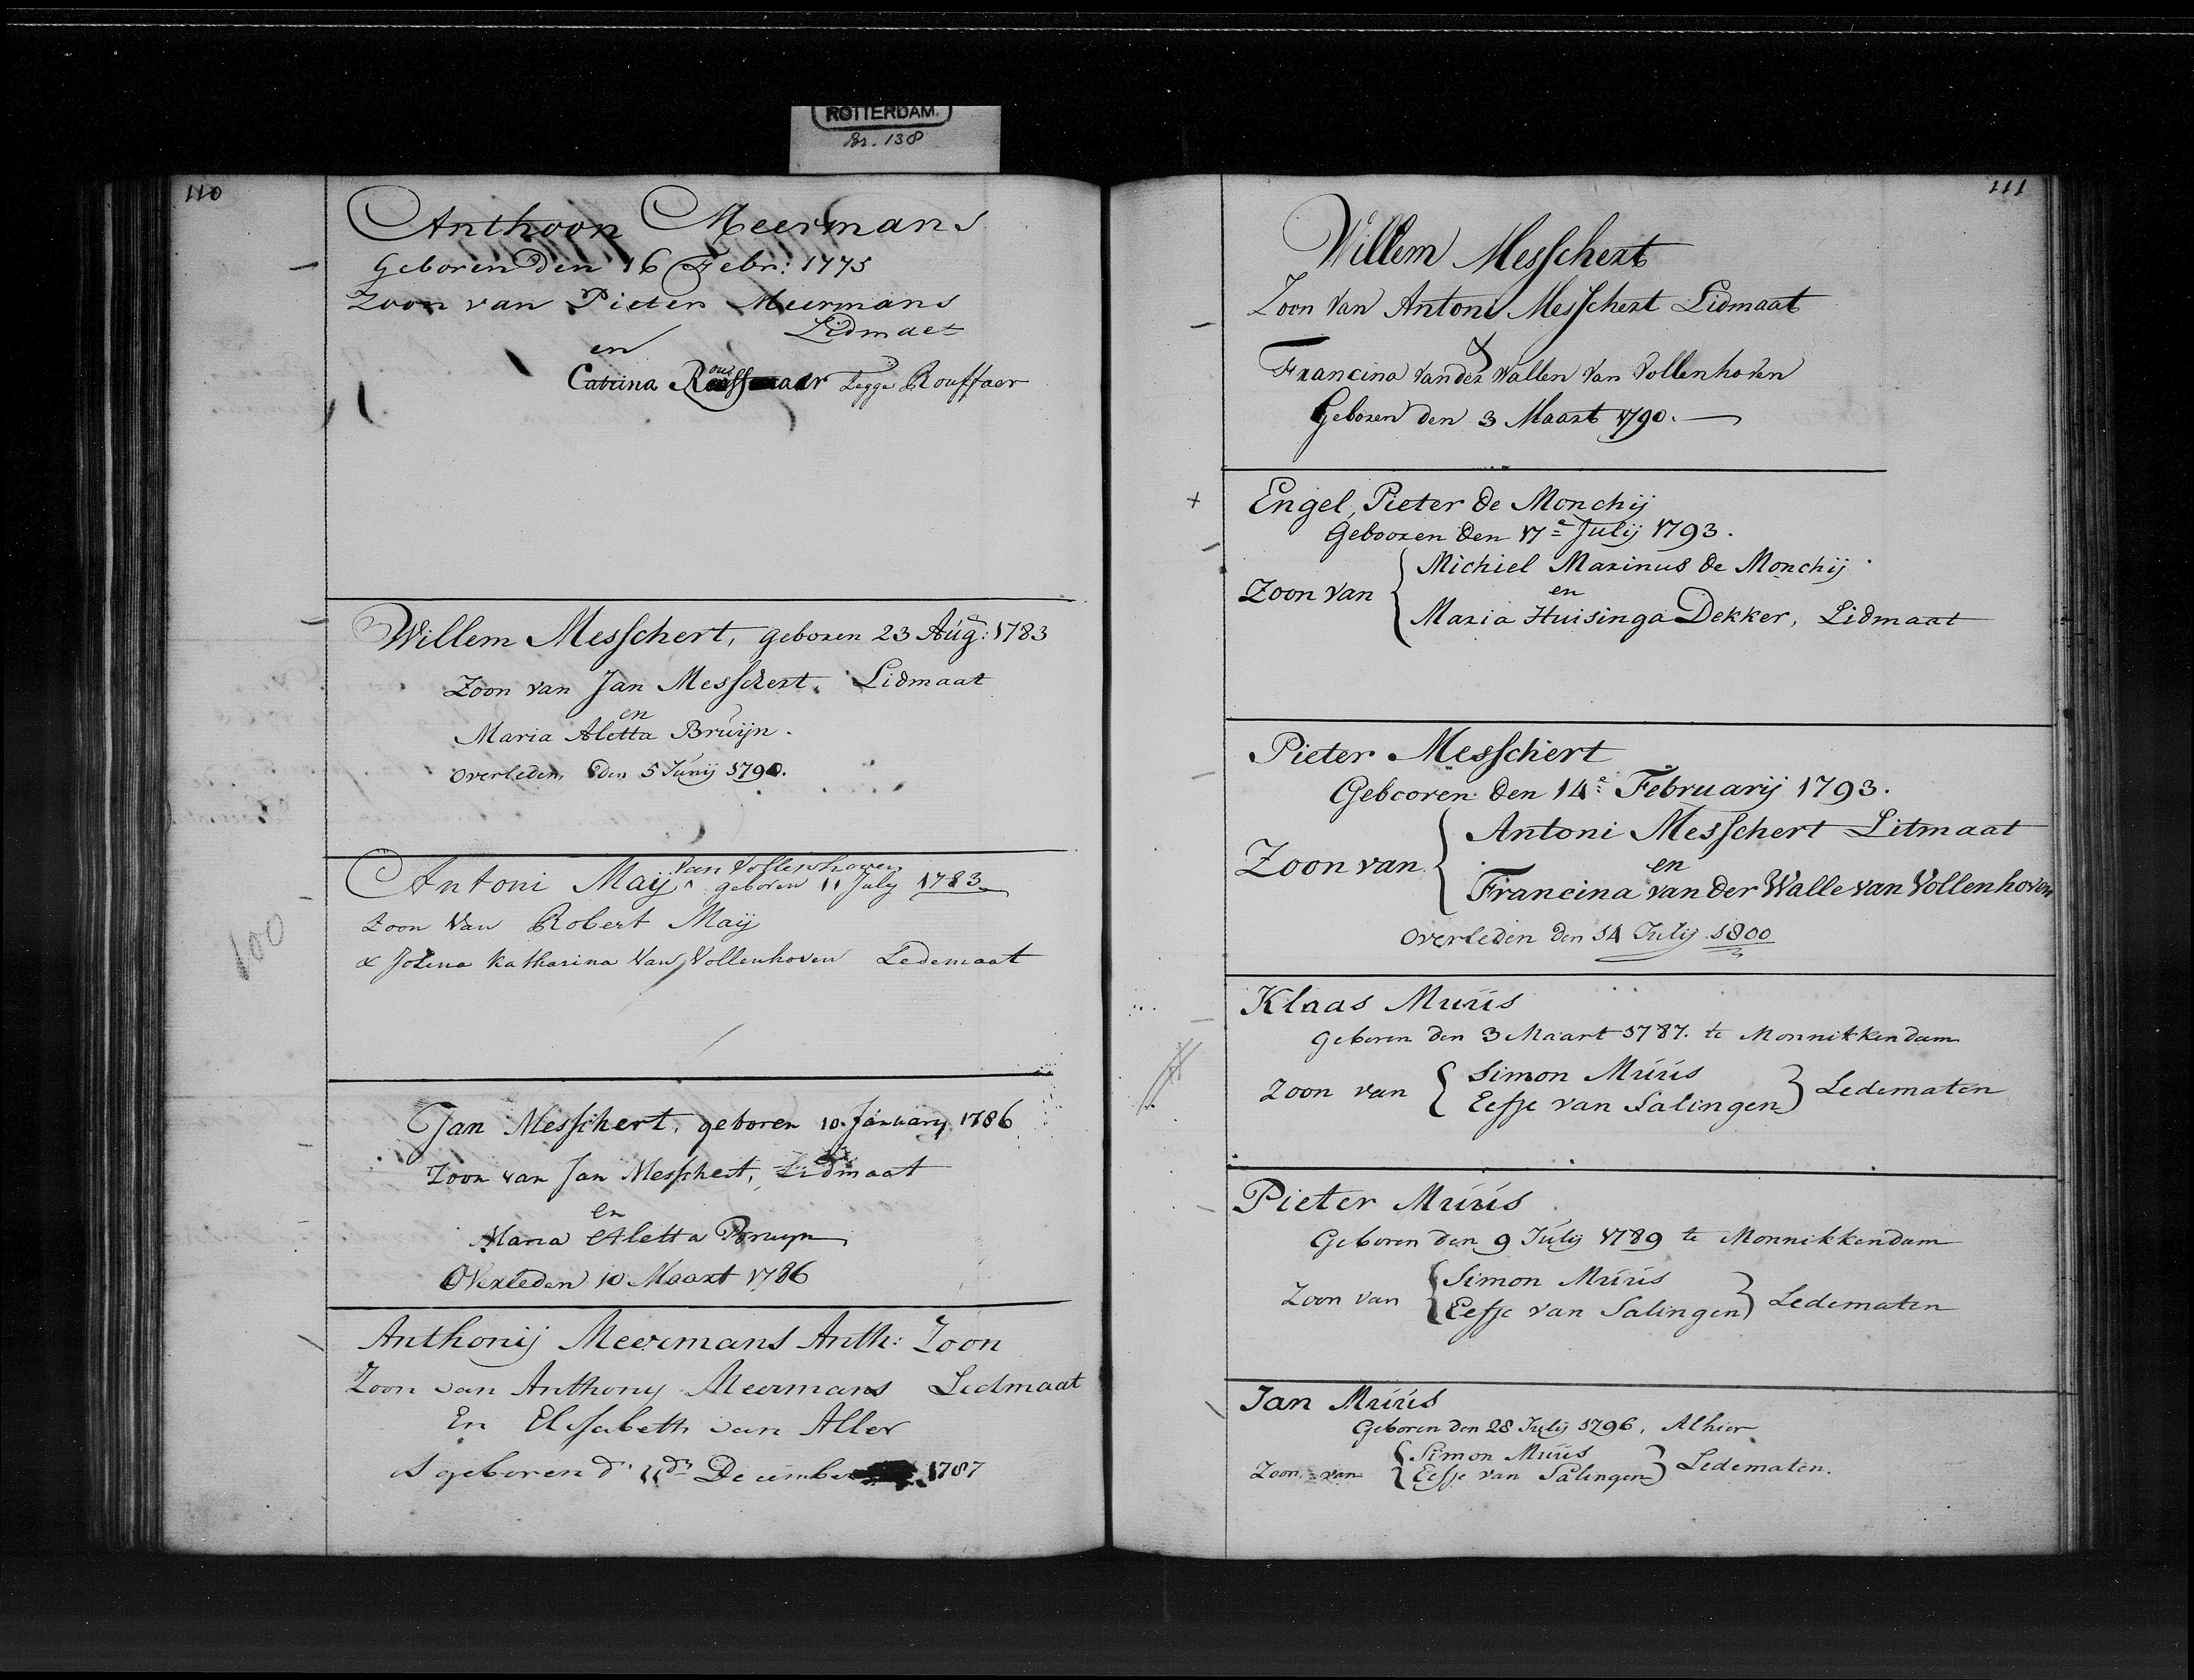 ROTTERDAM.
Br. 138
110
Anthoon Meermans
Geboren den 16 Febr: 1775
Zoon van Pieter Meermans
Lidmaet
en
Catrina Legge Rouffaer
Willem Messchert, geboren 23 Aúg: 1783
Zoon van Jan Messchert. Lidmaat
en
Maria Aletta Bruijn.
Overleden den 5 Junij 1790.
van Vollenhoven
Antoni Maij ^ geboren 11 July 1783
Zoon Van Robert Maij
& Jozina Katharina Van Vollenhoven Ledemaat
100
Jan Messchert, geboren 10. January 1786
Zoon van Jan Messchert, Lidmaat
en
Maria Aletta Bruyn
Overleden 10 Maart 1786
Anthonij Meermans Anth: Zoon
Zoon van Anthony Meermans Ledmaat
En Elisabeth van Aller
is geboren d. 11 December 1787
111
Willem Messchert
Zoon Van Antoni Messchert Lidmaat
&
Francina Vander Wallen Van Vollenhoven
Geboren den 3 Maart 1790.
+
Engel, Pieter de Monchij
Gebooren den 17e Julij 1793.
Michiel Marinus de Monchij
Zoon van
en
Maria Huisinga Dekker, Lidmaat
Pieter Messchert
Gebooren den 14e Februarij 1793.
Antoni Messchert Litmaat
Zoon van
en
Francina van der Walle van Vollenhoven
Overleden den 14 Julij 1800
Klaas Muüs
geboren den 3 Maart 1787. te Monnikkendam
Simon Múús
Zoon van Ledematen
Eefje van Salingen
Pieter Múús
Geboren den 9 Julij 1789 te Monnikkendam
Simon Múús
Zoon van Ledematen
Eefje van Salingen
Jan Múús
Geboren den 28 Julij 1796, Alhier
Simon Muüs
Zoon van Ledematen.
Eefje van Salingen